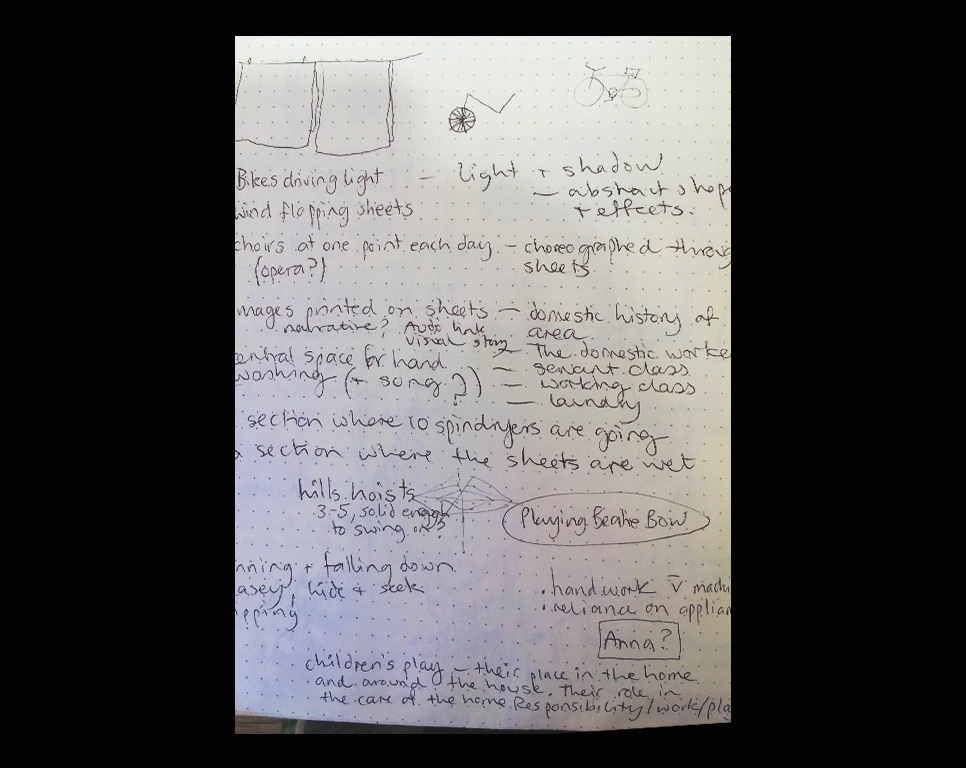 Bikes driving light – light + shadow
– abstract shap
+ effects.
wind flapping sheets
choirs at one point each day – choreographed throug
(opera?) sheets
mages printed on sheets – domestic history of
narrative? Audio link area
visual story
– The domestic worke
entral space for hand – servant class
washing (+ song?) – working class
?
– laundry
section where 10 spindryers are going
section where the sheets are wet
hills hoists
3-5, solid enough
to swing on?
Playing Beatie Bow
nning + falling down
asey, hide + seek
pping
• handwork v machi
• reliance on applian
Anna?
children's play – their place in the home
and around the house. Their role in
the care of the home. Responsibility/work/pla